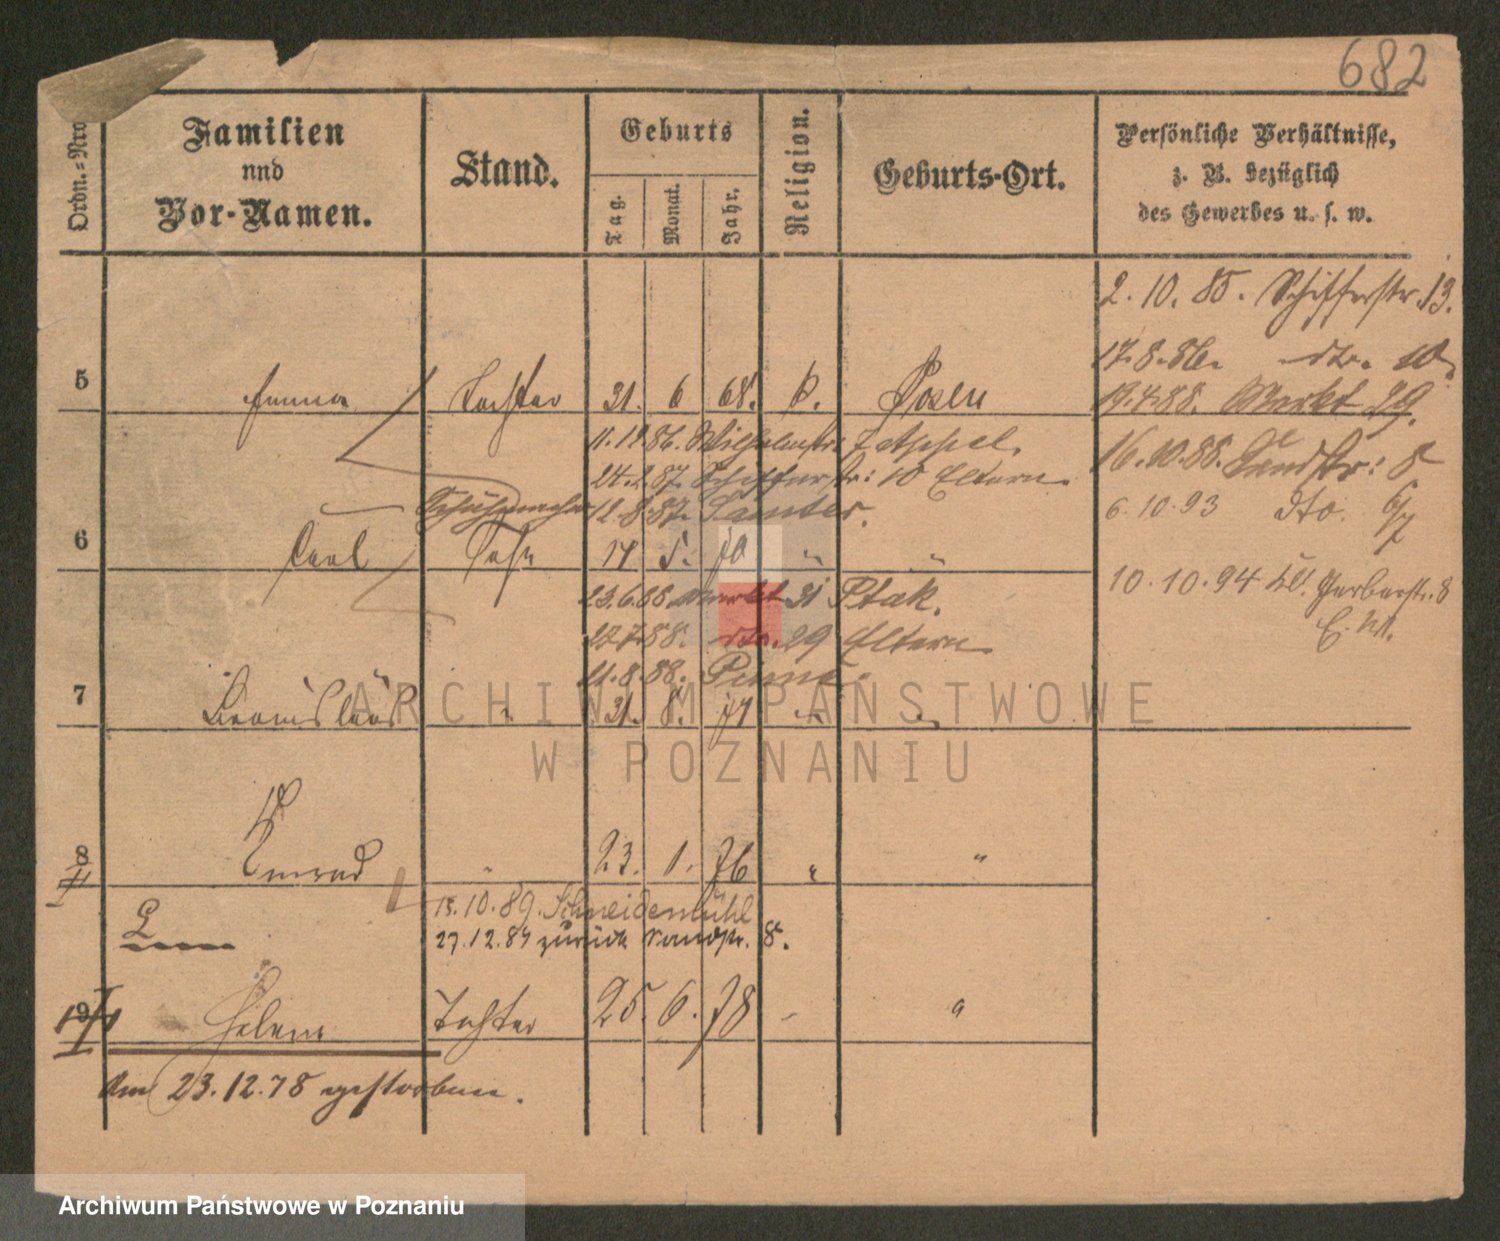 682
Ordn.=Nro
Familien
nnd
Vor-Namen.
Stand.
Geburts
Tag.
Monat.
Jahr.
Religion.
Geburts-Ort.
Persönliche Verhältnisse,
z. B. bezüglich
des Gewerbes u. s. w.
2. 10. 85. Schifferstr. 13.
17. 8. 86. dto. 10.
5 Emma Tochter 31. 6 68. k. Posen
19. 4. 88. Markt 29.
11. 12. 86. Wilhelmstr. 7 Appel.
16. 10. 88. Sandstr: 8
24. 2. 87. Schifferstr: 10 Eltern.
Schuhmacher 12. 8. 87. Samter.
6. 10. 93 dto. 6/7
6 Carl Sohn 14 5. 70 " "
10. 10. 94 Kl. Gerberstr. 8
23. 6. 88 Markt 31 Ptak.
E. W.
27. 7. 88. dto. 29 Eltern
11. 8. 88.
7 " 31. 8. 71 " "
8 Conrad " 23. 1. 76 " "
15. 10. 89. Schneidemühl
27. 12. 89 zurück Sandstr. 8.
9 Helene Tochter 25. 6. 78 "
Am 23. 12. 78 gestorben.
ARCHIWUM PAŃSTWOWE
W POZNANIU
Archiwum Państwowe w Poznaniu